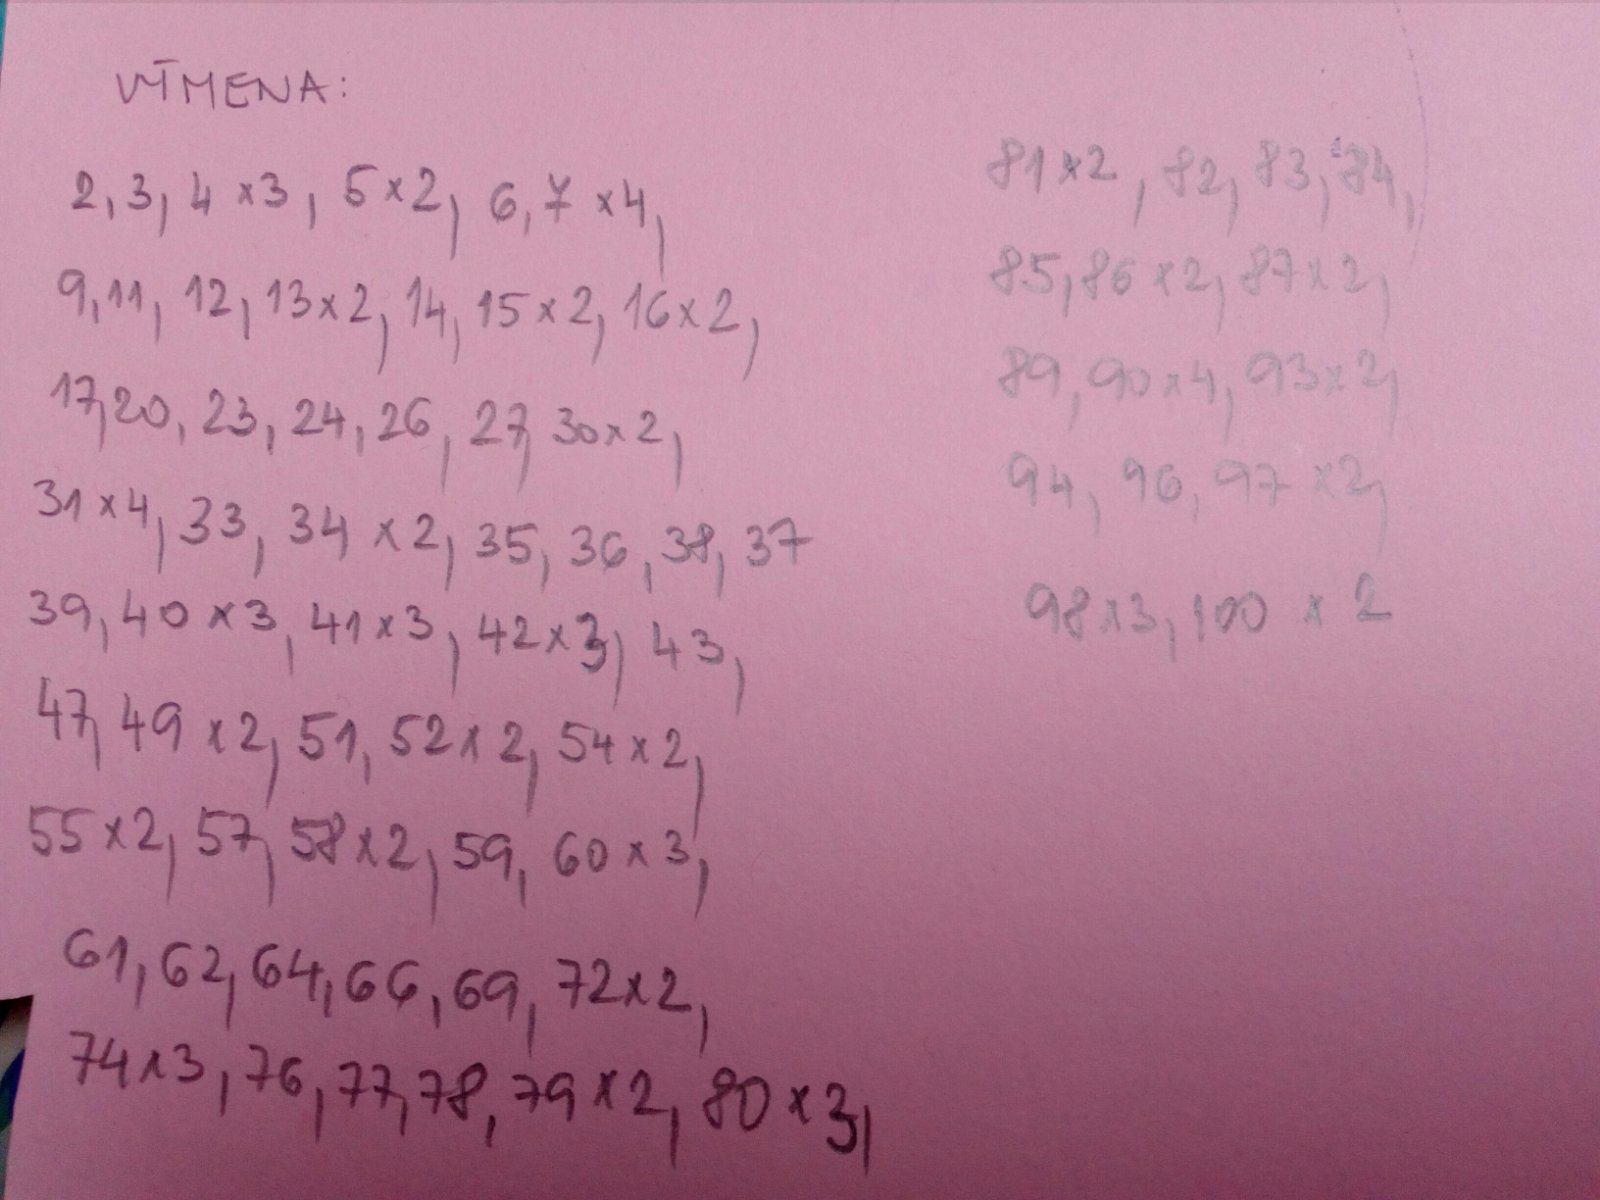 VÝMENA:
2, 3, 4 x3, 5x2, 6, 7 x4,
9, 11, 12, 13x2, 14, 15x2, 16x2,
17, 20, 23, 24, 26, 27, 30x2,
31x4, 33, 34 x2, 35, 36, 38, 37
39, 40 x3, 41x3, 42x3, 43,
47, 49 x2, 51, 52x2, 54x2,
55x2, 57, 58x2, 59, 60x3,
61, 62, 64, 66, 69, 72x2,
74x3, 76, 77, 78, 79x2, 80x3,
81x2, 82, 83, 84,
85, 86x2, 87x2,
89, 90x4, 93x2,
94, 96, 97 x2,
98x3, 100 x 2